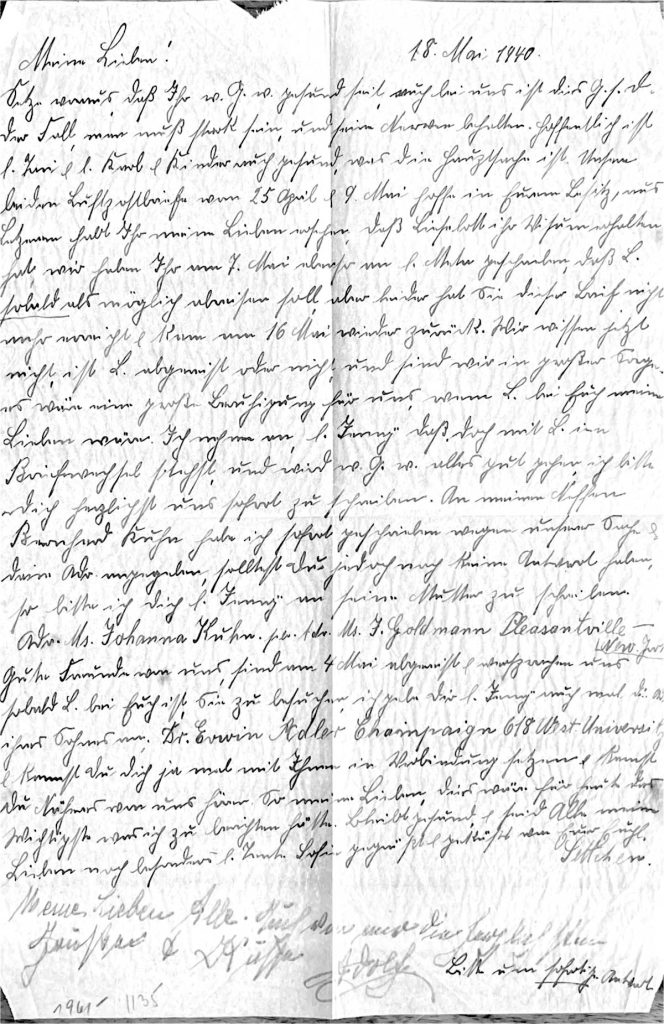 Meine Lieben! 18. Mai 1940.
Setze voraus, daß Ihr w. G. w. gesund seit, auch bei uns ist dies G. s. D.
der Fall, man muß stark sein, und seine Nerven behalten. Hoffentlich ist
l. & l. Karl & Kinder auch gesund, was die Hauptsache ist. Unsere
beiden Luftpostbriefe vom 25 April & 9. Mai hoffe in Eurem Besitz, aus
Letzterem habt Ihr meine Lieben ersehen, daß Lieselott ihr Visum erhalten
hat, wir haben Ihr am 7. Mai ebenso an l. Meta geschrieben, daß L.
sobald als möglich abreisen soll, aber leider hat Sie dieser Brief nicht
mehr erreicht & kam am 16 Mai wieder zurück. Wir wissen jetzt
nicht, ist L. abgereist oder nicht, und sind wir in großer Sorge.
es wäre eine große Beruhigung für uns, wenn L. bei Euch meine
Lieben wäre. Ich nehme an, l. Jenny daß doch mit L. im
Briefwechsel stehst, und wird w. G. w. alles gut gehen, ich bitte
dich herzlichst uns sofort zu schreiben. An meinen Neffen
Bernhard Kuhn habe ich sofort geschrieben wegen unserer Sache &
deine Adr. angegeben, solltest Du jedoch noch keine Antwort haben,
so bitte ich Dich l. Jenny an seine Mutter zu schreiben.
Adr. Ms. Johanna Kuhn. Adr. Ms. J. Goldmann Pleasantville
New-York
Gute Freunde von uns, sind am 4 Mai abgereist & versprachen uns
sobald L. bei Euch ist, Sie zu besuchen, ich gebe Dir l. Jenny auch mal die
ihres Sohnes an, Dr. Erwin Adler Champaign 618 West Universit
& kannst Du dich ja mal mit Ihnen in Verbindung setzen & kannst
Du Näheres von uns hören. So meine Lieben, dies wäre für heute das
Wichtigste was ich zu berichten hätte. Bleibt gesund & seid Alle meine
Lieben noch besonders l. Tante gegrüßt & geküßt von Eur Euchl.
Settchen.
Meine Lieben Alle. Auch von mir die herzlichsten
Grüße & Küsse Adolf
Bitte um sofortige Antwort
1961 1135